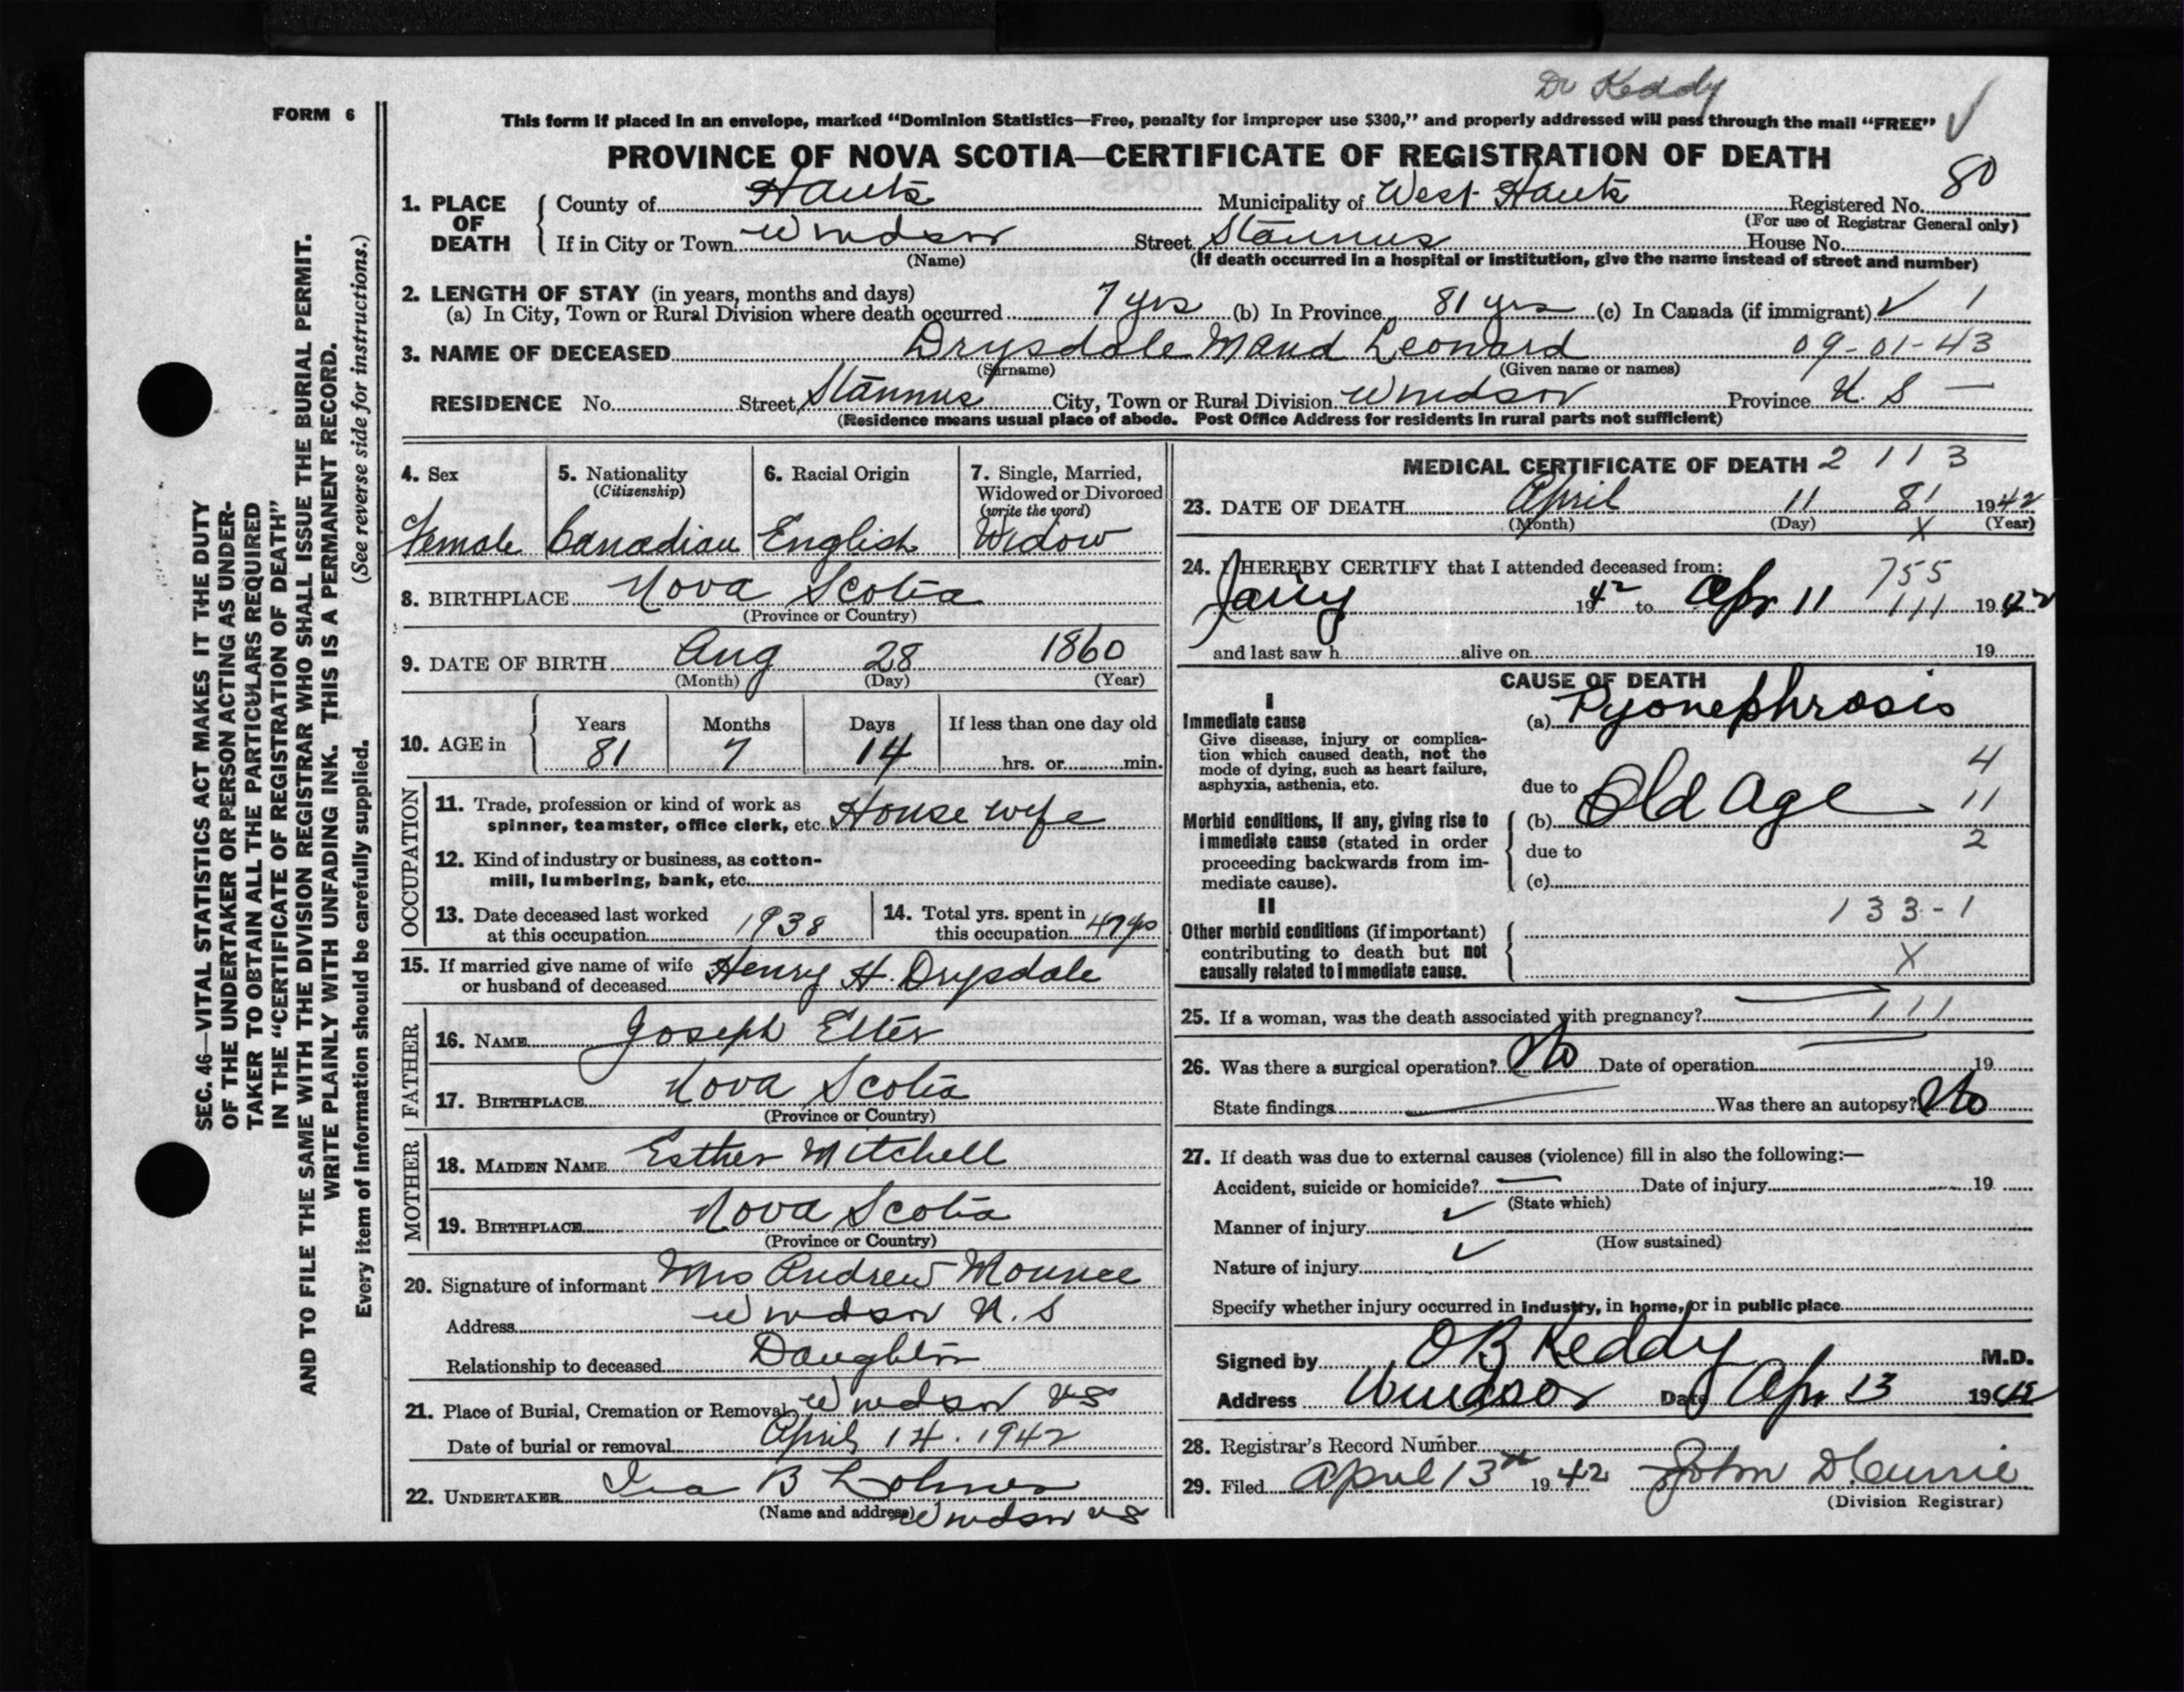 Dr Keddy
FORM 6
This form if placed in an envelope, marked "Dominion Statistics—Free, penalty for improper use $300," and properly addressed will pass through the mail "FREE" ✓
PROVINCE OF NOVA SCOTIA—CERTIFICATE OF REGISTRATION OF DEATH
1. PLACE OF DEATH { County of Hants Municipality of West Hants Registered No. 80
(For use of Registrar General only)
If in City or Town Windsor Street Stannus House No.
(Name) (If death occurred in a hospital or institution, give the name instead of street and number)
2. LENGTH OF STAY (in years, months and days)
(a) In City, Town or Rural Division where death occurred 7 yrs (b) In Province 81 yrs (c) In Canada (if immigrant) ✓ 1
3. NAME OF DECEASED Drysdale Maud Leonard 09-01-43
(Surname) (Given name or names)
RESIDENCE No. Street Stannus City, Town or Rural Division Windsor Province N. S —
(Residence means usual place of abode. Post Office Address for residents in rural parts not sufficient)
4. Sex
Female
5. Nationality
(Citizenship)
Canadian
6. Racial Origin
English
7. Single, Married,
Widowed or Divorced
(write the word)
Widow
8. BIRTHPLACE Nova Scotia
(Province or Country)
9. DATE OF BIRTH Aug 28 1860
(Month) (Day) (Year)
10. AGE in { Years Months Days If less than one day old
81 7 14 hrs. or min.
OCCUPATION
11. Trade, profession or kind of work as
spinner, teamster, office clerk, etc. House wife
12. Kind of industry or business, as cotton-
mill, lumbering, bank, etc.
13. Date deceased last worked
at this occupation 1938
14. Total yrs. spent in
this occupation 47 yrs
15. If married give name of wife
or husband of deceased Henry H. Drysdale
FATHER
16. NAME Joseph Etter
17. BIRTHPLACE Nova Scotia
(Province or Country)
MOTHER
18. MAIDEN NAME Esther Mitchell
19. BIRTHPLACE Nova Scotia
(Province or Country)
20. Signature of informant Mrs Andrew Mounce
Address Windsor N. S
Relationship to deceased Daughter
21. Place of Burial, Cremation or Removal Windsor NS
Date of burial or removal April 14. 1942
22. UNDERTAKER Ira B Lohnes
(Name and address) Windsor NS
MEDICAL CERTIFICATE OF DEATH 2 113
23. DATE OF DEATH April 11 81 1942
(Month) (Day) X (Year)
24. I HEREBY CERTIFY that I attended deceased from: 755
Jany 1942 to Apr 11 111 1942
and last saw h alive on 19
CAUSE OF DEATH
I
Immediate cause
Give disease, injury or complica-
tion which caused death, not the
mode of dying, such as heart failure,
asphyxia, asthenia, etc.
(a) Pyonephrosis
4
due to
Morbid conditions, if any, giving rise to
immediate cause (stated in order
proceeding backwards from im-
mediate cause).
(b) Old Age 11
due to 2
(c)
133-1
II
Other morbid conditions (if important)
contributing to death but not
causally related to immediate cause.
X
25. If a woman, was the death associated with pregnancy? 111
26. Was there a surgical operation? No Date of operation 19
State findings Was there an autopsy? No
27. If death was due to external causes (violence) fill in also the following:—
Accident, suicide or homicide? — Date of injury 19
(State which)
Manner of injury ✓
(How sustained)
Nature of injury ✓
Specify whether injury occurred in industry, in home, or in public place
Signed by OB Keddy M.D.
Address Windsor Date Apr 13 1942
28. Registrar's Record Number
29. Filed April 13th 1942 John D Currie
(Division Registrar)
SEC. 46—VITAL STATISTICS ACT MAKES IT THE DUTY
OF THE UNDERTAKER OR PERSON ACTING AS UNDER-
TAKER TO OBTAIN ALL THE PARTICULARS REQUIRED
IN THE "CERTIFICATE OF REGISTRATION OF DEATH"
AND TO FILE THE SAME WITH THE DIVISION REGISTRAR WHO SHALL ISSUE THE BURIAL PERMIT.
WRITE PLAINLY WITH UNFADING INK. THIS IS A PERMANENT RECORD.
Every item of information should be carefully supplied. (See reverse side for instructions.)